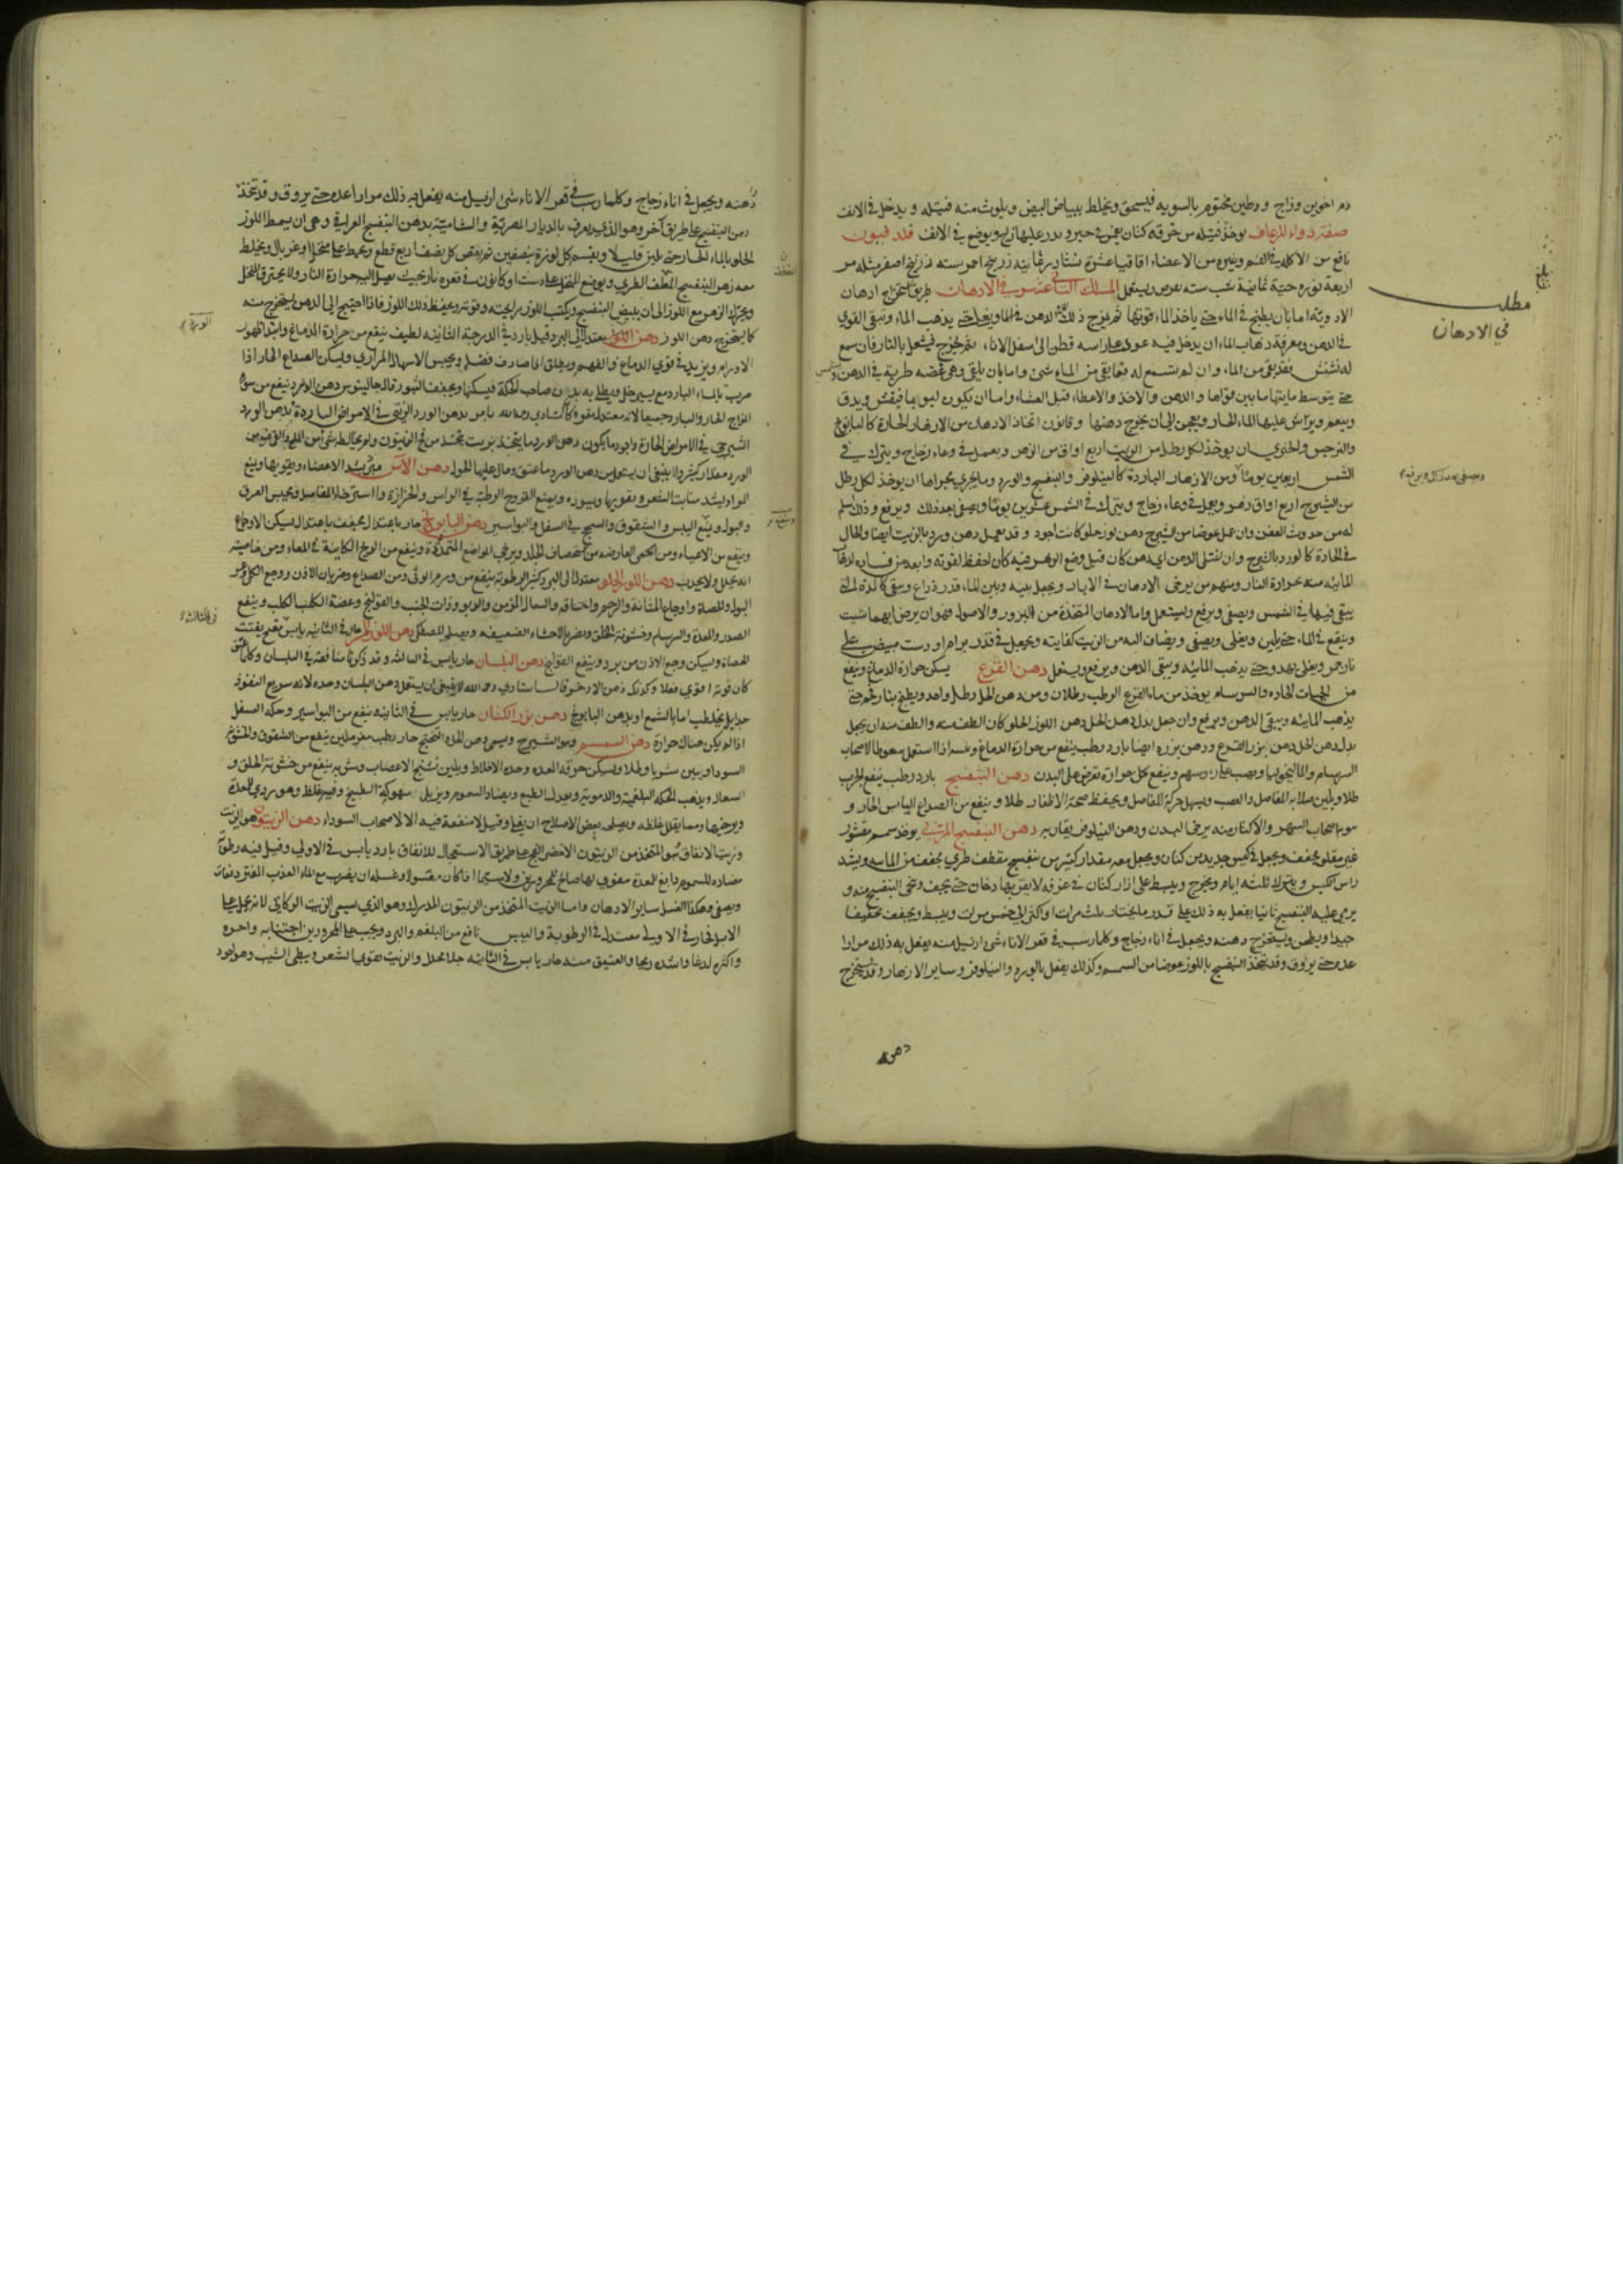 دم اخوين وزاج وطين مختوم بالسويه فيسحق ويخلط ببياض البيض ويلوث منه فتيله ويدخل في الانف
صفة دواء للرعاف يوخذ فتيله من خرقه كتان يغمس في حبر و عليها زاج ويوضع في الانف
نافع من الاكله في الفم وغيره من الاعضاء اقاقيا عشرة ثمانية زرنيخ احمر سته زرنيخ اصفر مثله مر
اربعة نوره حية ثمانية شب سته يقرص ويستعمل المسلك التاسع عشر في الادهان طريق استخراج ادهان
الادوية اما بان يطبخ في الماء حتى ياخذ الماء قوتها ثم يمزج ذلك الدهن في الماء ويغلى حتى يذهب الماء وتبقى القوي
في الدهن ومعرفة ذهاب الماء ان يدخل فيه عود على راسه قطن الى اسفل الاناء ثم يخرج فيشعل بالنار فان سمع
له نشنش فقد بقي من الماء وان لم يسمع له فما بقي من الماء شئ واما بان يلقى وهي غضه طرية في الدهن
حتى يتوسط ما بينها ما بين قواها والدهن والاخذ والاعطاء قبل العشاء واما ان يكون لبوبا فيقشر ويدق
وينعم ويرش عليها الماء الحار ويعجن الى ان يخرج دهنها وقانون اتخاذ الادهان من الازهار الحارة كالبابونج
والنرجس والخيري ان يوخذ لكل رطل من الزيت اربع اواق من الزهر ويعمل في وعاء زجاج ويترك في
الشمس اربعين يوما ومن الازهار الباردة كالنيلوفر والبنفسج والورد وما يجري مجراها ان يوخذ لكل رطل
من الشيرج اربع اواق زهر ويجعل في وعاء زجاج ويترك في الشمس عشرين يوما ويصفى بعد ذلك ويرفع وذلك اسلم
له من حدوث العفن وان عمل عوضا من الشيرج دهن لوز حلو كانت اجود وقد يعمل دهن ورد بالزيت ايضا والخال
في الحادة كالورد بالشيرج وان نشل الدهن اي دهن كان قبل وضع الزهر فيه كان احفظ لقوته وابعد من فساده لذهاب
المائيه منه بحرارة النار ومنهم من يرخي الادهان في الابار ويجعل بينه وبين الماء قدر ذراع ويبقى كالمدة التي
يبقى فيها في الشمس ويصفى ويرفع ويستعمل واما الادهان المتخذة من البزور والاصول فهو ان يرض ايهما شئت
وينقع في الماء حتى يلين ويغلى ويصفى ويضاف اليه من الزيت كفايته ويجعل في قدر برام او دست مبيض على
نار جمر ويغلى بهدو حتى يذهب المائيه ويبقى الدهن ويرفع ويستعمل دهن القرع يسكن حرارة الدماغ وينفع
من الحميات الحاده والسرسام يوخذ من ماء القرع الرطب رطلان ومن دهن الحل رطل واحد ويطبخ بنار فحم حتى
يذهب المائيه ويبقى الدهن ويرفع وان جعل بدل دهن الحل دهن اللوز الحلو كان الطف منه والطف منه ان يجعل
بدل دهن الحل دهن بزر القرع ودهن بزره ايضا بارد رطب ينفع من حرارة الدماغ وغيره اذا استعمل سعوطا لاصحاب
السرسام والماليخوليا ويصب على روسهم وينفع لكل حرارة تعرض على البدن دهن البنفسج بارد رطب ينفع الجرب
طلا ويلين صلابه المفاصل والعصب ويسهل حركة المفاصل ويحفظ صحة الاظفار طلا وينفع من الصداع اليابس الحار و
سهر اصحاب السهر والاكثار منه يرخي البدن ودهن النيلوفر يقاربه دهن البنفسج المربى يوخذ سمسم مقشور
غير مقلو يجفف ويجعل في كيس جديد من كتان ويجعل معه مقدار كثير من بنفسج مقطف طري يجفف من المائيه ويشد
راس الكيس ويترك ثلثه ايام ويخرج ويبسط على ازار كتان في غرفه لا يقربها دخان حتى يجف وينحى البنفسج منه و
يرمى عليه البنفسج ثانيا يفعل به ذلك على قدر ما يحتاج ثلث مرات او اكثر الى خمس مرات ويبسط ويجفف تجفيفا
جيدا ويطحن ويستخرج دهنه ويجعل في اناء زجاج وكلما رسب في قعر الاناء شئ ازيل منه يفعل به ذلك مرارا
عده حتى يروق وقد يتخذ البنفسج باللوز عوضا من السمسم وكذلك يفعل بالورد والنيلوفر وساير الازهار وقد يستخرج
دهن
مطلب
في الادهان
بلغ
دهنه ويجعل في اناء زجاج وكلما رسب في قعر الاناء شئ ازيل منه يفعل به ذلك مرارا عده حتى يروق وقد يتخذ
دهن البنفسج على طريق آخر وهو الذي يعرف بالديار المصرية والشامية بدهن البنفسج العراقي وهي ان يسمط اللوز
الحلو بالماء الحار حتى يلين قليلا ويقسم كل لوزة بنصفين ثم يقص كل نصف اربع قطع ويحط على منخل او غربال ويخلط
معه زهر البنفسج المقطف الطري ويوضع المنخل على دست او كانون في قعره نار بحيث يصل اليه حرارة النار ولا يحترق المنخل
ويحرك الزهر مع اللوز الى ان يبيض البنفسج ويكتسب اللوز برايحته وقوته ويحفظ ذلك اللوز فاذا احتيج الى الدهن يستخرج منه
كما يستخرج دهن اللوز دهن الورد معتدل الى البرد قيل بارد في الدرجة الثانيه لطيف ينفع من حرارة الدماغ وابتدا ظهور
الاورام ويزيد في قوي الدماغ والفهم ويطلق اذا صادف فضلا ويحبس الاسهال المراري ويسكن الصداع الحار اذا
ضرب بالماء البارد مع يسير خل ويطلى به بدن صاحب الحكة فيسكنها ويجفف البثور قال جالينوس دهن الورد ينفع من سوء
المزاج الحار والبارد جميعا لانه معتدل
الشيرجي في الامراض الحادة واجود ما يكون دهن الورد ما يتخذ بزيت
الورد مقدار كثير ولا ينبغي ان يستعمل من دهن الورد ما عتق ومال عليها الحول دهن الآس يشد الاعضاء ويقويها ويمنع
المواد ويشد منابت الشعر ويقويها ويسوده ويمنع القروح الرطبة في الراس والحزازة واسترخاء المفاصل ويحبس العرق
والبول وينفع اليبس والشقوق والسحج في السفل والبواسير دهن البابونج حار باعتدال يجفف باعتدال يسكن الاوجاع
وينفع من الاعياء ومن الحمى العارضه من استحصاف الجلد ويرخي المواضع المتمددة وينفع من الريح الكاينة في المعاء ومن خاصيته
انه يحلل ولا يجذب دهن اللوز الحلو معتدل الى البرد كثير الرطوبة ينفع من ومن الصداع وضربان الاذن ووجع الكلى وعسر
البول والحصاة واوجاع المثانة والرحم واختناقه والسعال المزمن والربو وذات الجنب والقولنج وعضة الكلب الكلب وينفع
الصدر والمعدة والسرسام وخشونة الحلق ويضر بالاحشاء الضعيفه ويصلحه المصطكى دهن اللوز المر حار في الثانيه يابس مفتح يفتت
الحصاة ويسكن وجع الاذن من برد وينفع القولنج دهن البلسان حار يابس في الثالثه وقد ذكرنا منافعه في البلسان وكلما عتق
كان قوته اقوي فعلا وكذلك دهن الاذخر رحمه الله لا ينبغي ان يستعمل دهن البلسان وحده لانه سريع النفوذ
جدا بل يخلط اما بالشمع او بدهن البابونج دهن بزر الكتان حار يابس في الثانيه ينفع من البواسير وحكة السفل
اذا لم يكن هناك حرارة دهن السمسم وهو الشيرج ويسمى دهن الحل حار رطب مغر ملين ينفع من الشقوق والخشونة
السوداويين شربا وطلا ويسكن حرقة المعده وحدة الاخلاط ويلين تشنج الاعصاب وشربه ينفع من خشونة الحلق و
السعال ويذهب الحكة البلغمية والدموية ويعدل الطبع ويضاد السموم ويزيل سهوكة الطبيخ وفيه غلظ وهو ردي للمعدة
ويرخيها ومما يقلل غلظه ويصلحه بعض الاصلاح ان يغلى وقيل لا منفعة فيه الا لاصحاب السوداء دهن الزيتون هو الزيت
وزيت الانفاق هو المتخذ من الزيتون الاخضر الفج على طريق الاستعجال للانفاق بارد يابس في الاولي وقيل فيه رطوبة
مضاده للسموم دابغ للمعدة مقوي لها صالح للمحرورين ولا سيما اذا كان مغسولا وغسله ان يضرب مع الماء العذب المفتر دفعات
ويصفى وهكذا الغسل ساير الادهان واما الزيت المتخذ من الزيتون المدرك وهو الذي يسمى الزيت الركابي لانه يحمل على
الابل فحار في الاولى معتدل في الرطوبة واليبس نافع من البلغم والبرد ويجب على المحرورين اجتنابه واحره
واكثره لدغا واشده ريحا والعتيق منه حار يابس في الثانيه جلا محلل والزيت مقوي الشعر ويبطي الشيب وهو اجود